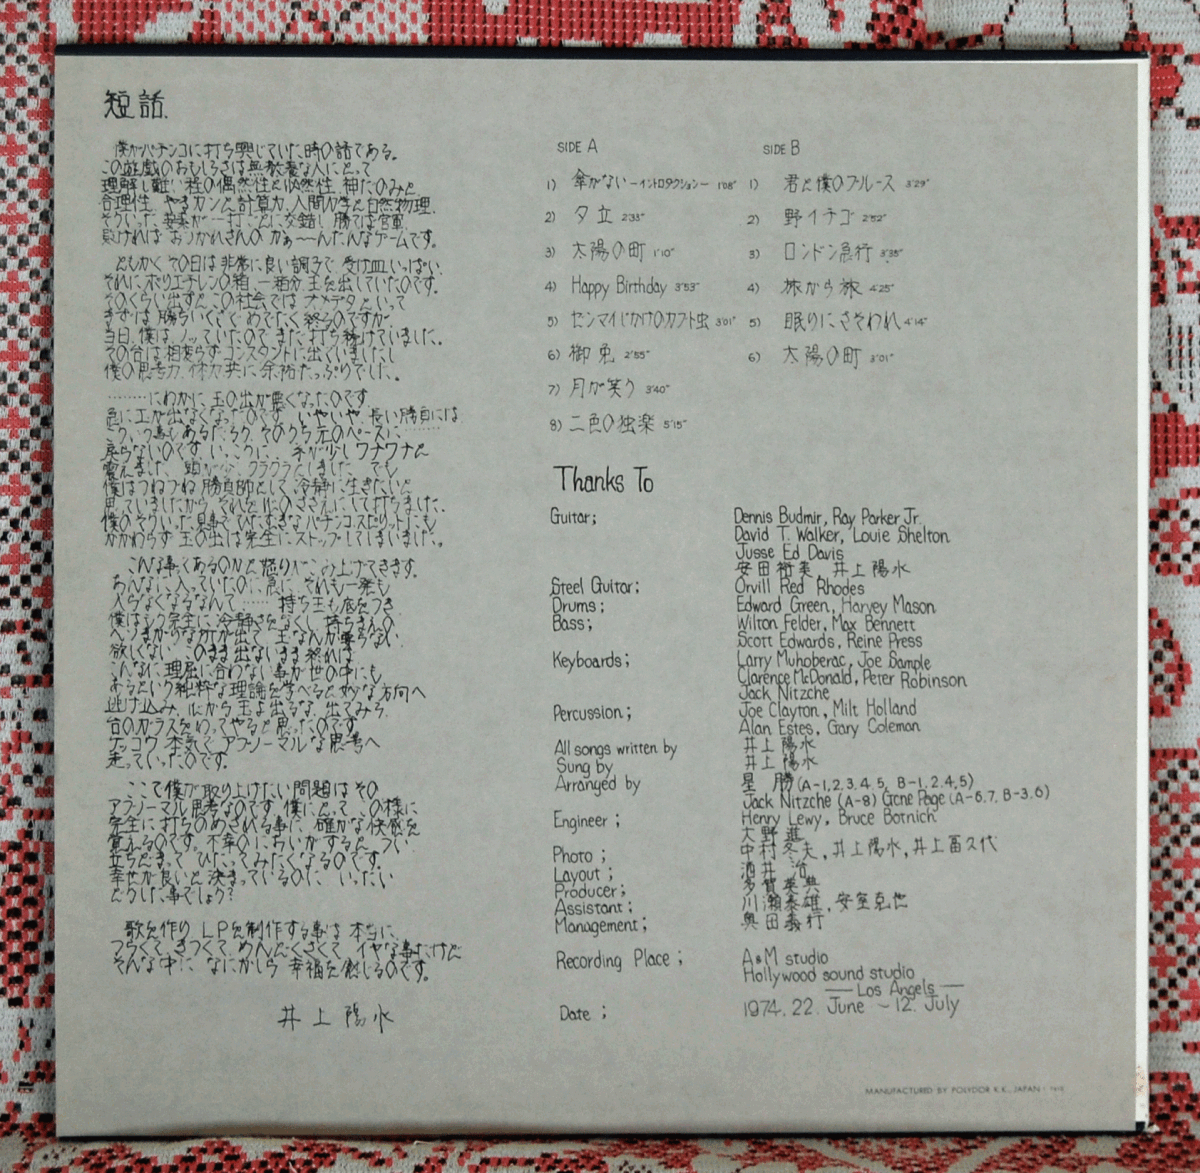 短話.
僕がパチンコに打ち興じていた時の話である。
この遊戯のおもしろさは無教養な人にとって
理解し難い程の偶然性と必然性、神だのみと
合理性、やまカンと計算力、人間力学と自然物理、
そういった要素が一打ごとに交錯し勝てば官軍
負ければおつかれさんのかぁ〜んたんなゲームです。
ともかくその日は非常に良い調子で受け皿いっぱい、
それにポリエチレンの箱、一箱分玉を出していたのです。
そのくらい出すと、この社会ではオメデタといって
まずは勝ちいくさでめでたく終るのですが、
当日、僕はノッていたのでまだ打ち続けていました。
その台は相変らずコンスタントに出ていましたし
僕の思考力、体力共に余裕たっぷりでした。
………にわかに玉の出が悪くなったのです
急に玉が出なくなったのです。いやいや、長い勝負には
こういう事もあるだろう、そのうち元のペースに………
戻らないのです、いっこうに。手が少しワナワナと
震えました、頭が少しクラクラとしました、でも
僕はつねづね勝負師として、冷静に生きたいと
思っていましたから、それを心のささえにして打ちました、
僕のそういった見事でひたむきなパチンコスピリットにも
かかわらず玉の出は完全にストップしてしまいました。
こんな事があるのかと怒りがこみ上げてきます。
あんなに入っていたのに急に、それも一発も
入らなくなるなんて……持ち玉も底をつき
僕はもう完全に冷静さをなくし持ちまえの
欲しくない、このまま出ないまま終れば
こんなに理屈に合わない事が世の中にも
あるという純粋な理論を学べると妙な方向へ
逃げ込み、心から玉よ出るな、出てみろ、
台のガラスをわってやると思ったのです
ケッコウ本気でアブノーマルな思考へ
走っていったのです。
ここで僕が取り上げたい問題はその
アブノーマル思考なのです。僕にとって、この様に
完全に打ちのめされる事に確かな快感を
覚えるのです。不幸のにおいがするとつい
立ちどまってひたってみたくなるのです。
幸せが良いと決まっているのに、いったい
どうした事でしょう?
歌を作り、LPを制作する事は本当に、
つらくて、きつくて、めんどくさくて、イヤな事だけど
そんな中に、なにかしら幸福を感じるのです。
井上陽水
SIDE A
1) 傘がない ーイントロダクションー 1'08"
2) 夕立 2'33"
3) 太陽の町 1'10"
4) Happy Birthday 3'53"
5) ゼンマイじかけのカブト虫 3'01"
6) 御免 2'55"
7) 月が笑う 3'40"
8) 二色の独楽 5'15"
SIDE B
1) 君と僕のブルース 3'29"
2) 野イチゴ 2'52"
3) ロンドン急行 3'35"
4) 旅から旅 4'25"
5) 眠りにさそわれ 4'14"
6) 太陽の町 3'01"
Thanks To
Guitar; Dennis Budmir, Ray Parker Jr.
David T. Walker, Louie Shelton
Jusse Ed Davis
安田裕美 井上陽水
Steel Guitar; Orvill Red Rhodes
Drums; Edward Green, Harvey Mason
Bass; Wilton Felder, Max Bennett
Scott Edwards, Reine Press
Keyboards; Larry Muhoberac, Joe Sample
Clarence McDonald, Peter Robinson
Jack Nitzche
Percussion; Joe Clayton, Milt Holland
Alan Estes, Gary Coleman
All songs written by 井上陽水
Sung by 井上陽水
Arranged by 星 勝 (A-1,2,3,4,5, B-1,2,4,5)
Jack Nitzche (A-8) Gene Page (A-6,7, B-3,6)
Engineer ; Henry Lewy, Bruce Botnich
大野進
Photo ; 中村冬夫, 井上陽水, 井上冨久代
Layout ; 酒井 治
Producer; 多賀英典
Assistant; 川瀬泰雄, 安室克也
Management; 奥田義行
Recording Place ; A&M studio
Hollywood sound studio
— Los Angels —
Date ; 1974. 22. June ~ 12. July
MANUFACTURED BY POLYDOR K.K., JAPAN